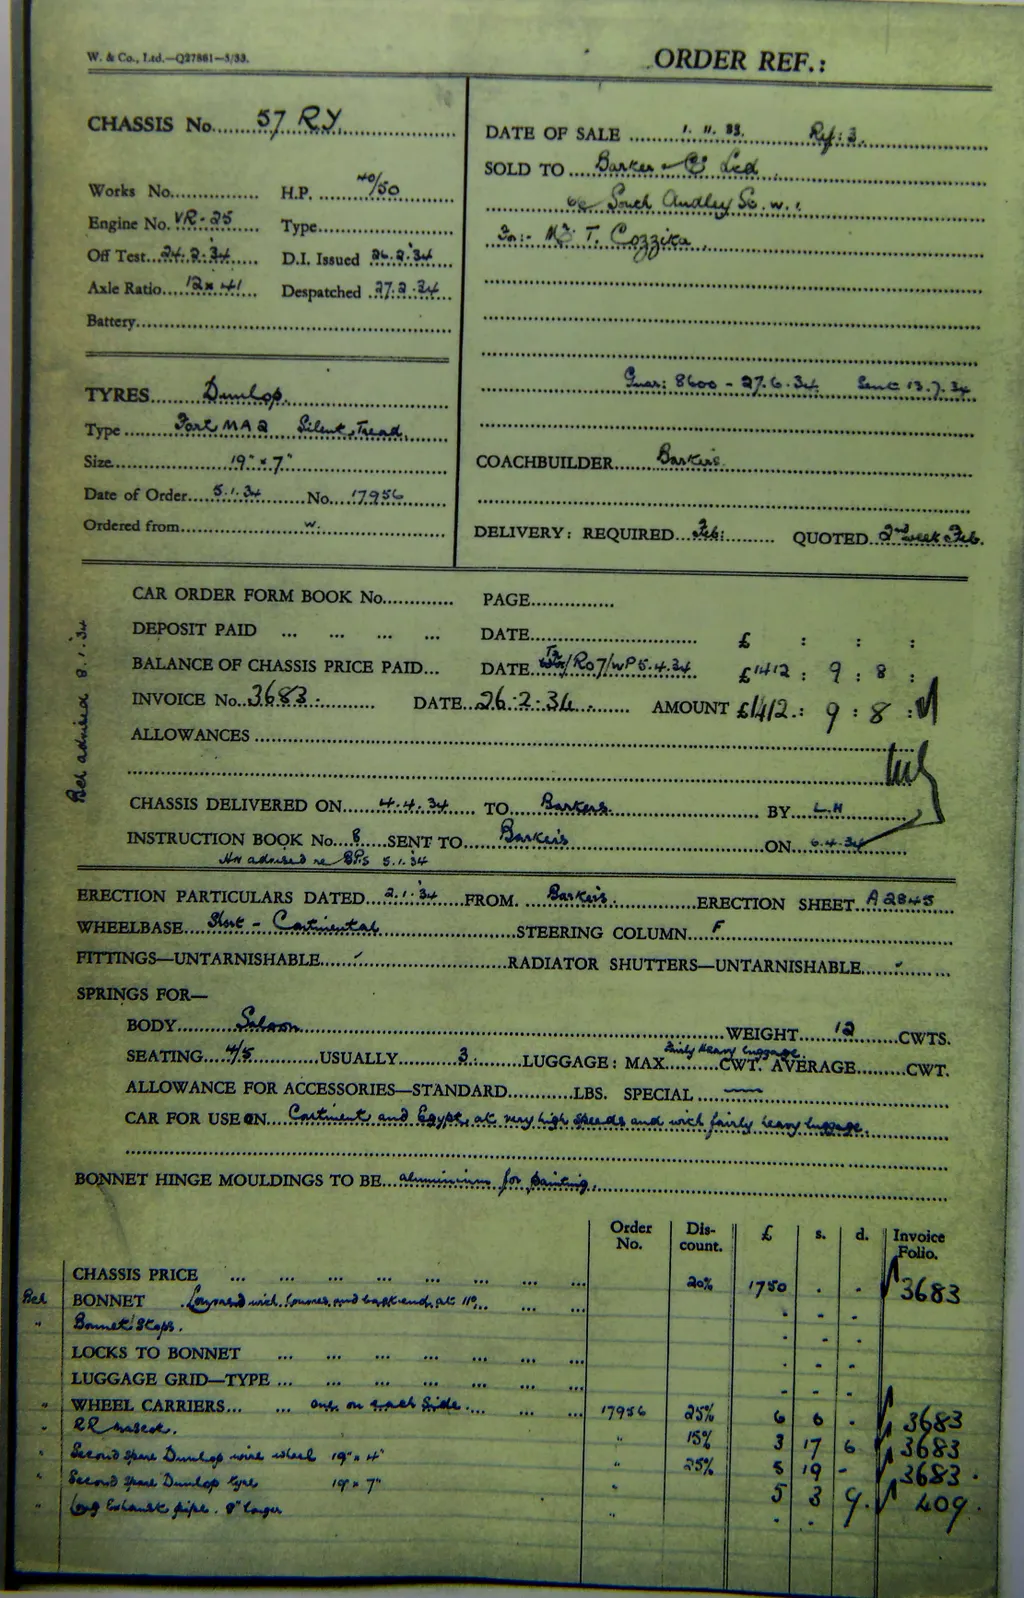 W. & Co., Ltd.—Q27861—5/33.
ORDER REF.:
CHASSIS No. 57 RY.
Works No. H.P. 40/50
Engine No. VR-25 Type
Off Test 24.2.34 D.I. Issued 26.2.34
Axle Ratio 12 x 41 Despatched 27.2.34
Battery
DATE OF SALE 1.11.33. Ry: 3.
SOLD TO Barker & Co Ltd.
South Audley St. W.1.
For:- Mr T. Cozzika.
Guar: 8600 - 27.6.34. Sent 13.7.34
TYRES Dunlop.
Type Fort MA2 Silent Tread.
Size 19" x 7"
Date of Order 5.1.34 No. 17956
Ordered from W.
COACHBUILDER Barkers.
DELIVERY: REQUIRED Feb: QUOTED 2nd week Feb.
CAR ORDER FORM BOOK No. PAGE
DEPOSIT PAID DATE £ : : :
BALANCE OF CHASSIS PRICE PAID DATE /Ro7/WP 5.4.34 £1412 : 9 : 8 :
INVOICE No. 3683. DATE 26.2.34. AMOUNT £1412. : 9 : 8 :
ALLOWANCES
Rel advised 8.1.34
CHASSIS DELIVERED ON 4.4.34 TO Barkers BY L.H
INSTRUCTION BOOK No. 8 SENT TO Barker's ON 6.4.34
advised re 5.1.34
ERECTION PARTICULARS DATED 2.1.34 FROM Barkers. ERECTION SHEET A 2845
WHEELBASE Short - Continental STEERING COLUMN F
FITTINGS—UNTARNISHABLE ✓ RADIATOR SHUTTERS—UNTARNISHABLE ✓
SPRINGS FOR—
BODY Saloon WEIGHT 12 CWTS.
SEATING 4/5 USUALLY 3. LUGGAGE: MAX. fairly heavy luggage. CWT. AVERAGE CWT.
ALLOWANCE FOR ACCESSORIES—STANDARD LBS. SPECIAL —
CAR FOR USE ON Continent and Egypt, at very high speeds and with fairly heavy luggage.
BONNET HINGE MOULDINGS TO BE aluminium for painting.
Order No. Discount. £ s. d. Invoice Folio.
CHASSIS PRICE 20% 1750 . - 3683
Rel BONNET with louvres and back end at 11°. - - -
" Bonnet Stops. - - -
LOCKS TO BONNET - - -
LUGGAGE GRID—TYPE - - -
" WHEEL CARRIERS one on each side. 17956 25% 6 6 - 3683
" RR mascot. " 15% 3 17 6 3683
" Second spare Dunlop wire wheel 19" x 4" " 25% 5 19 - 3683.
" Second spare Dunlop tyre 19" x 7" " 5 3 9. 409.
" Long Exhaust pipe. 8" longer " - - -